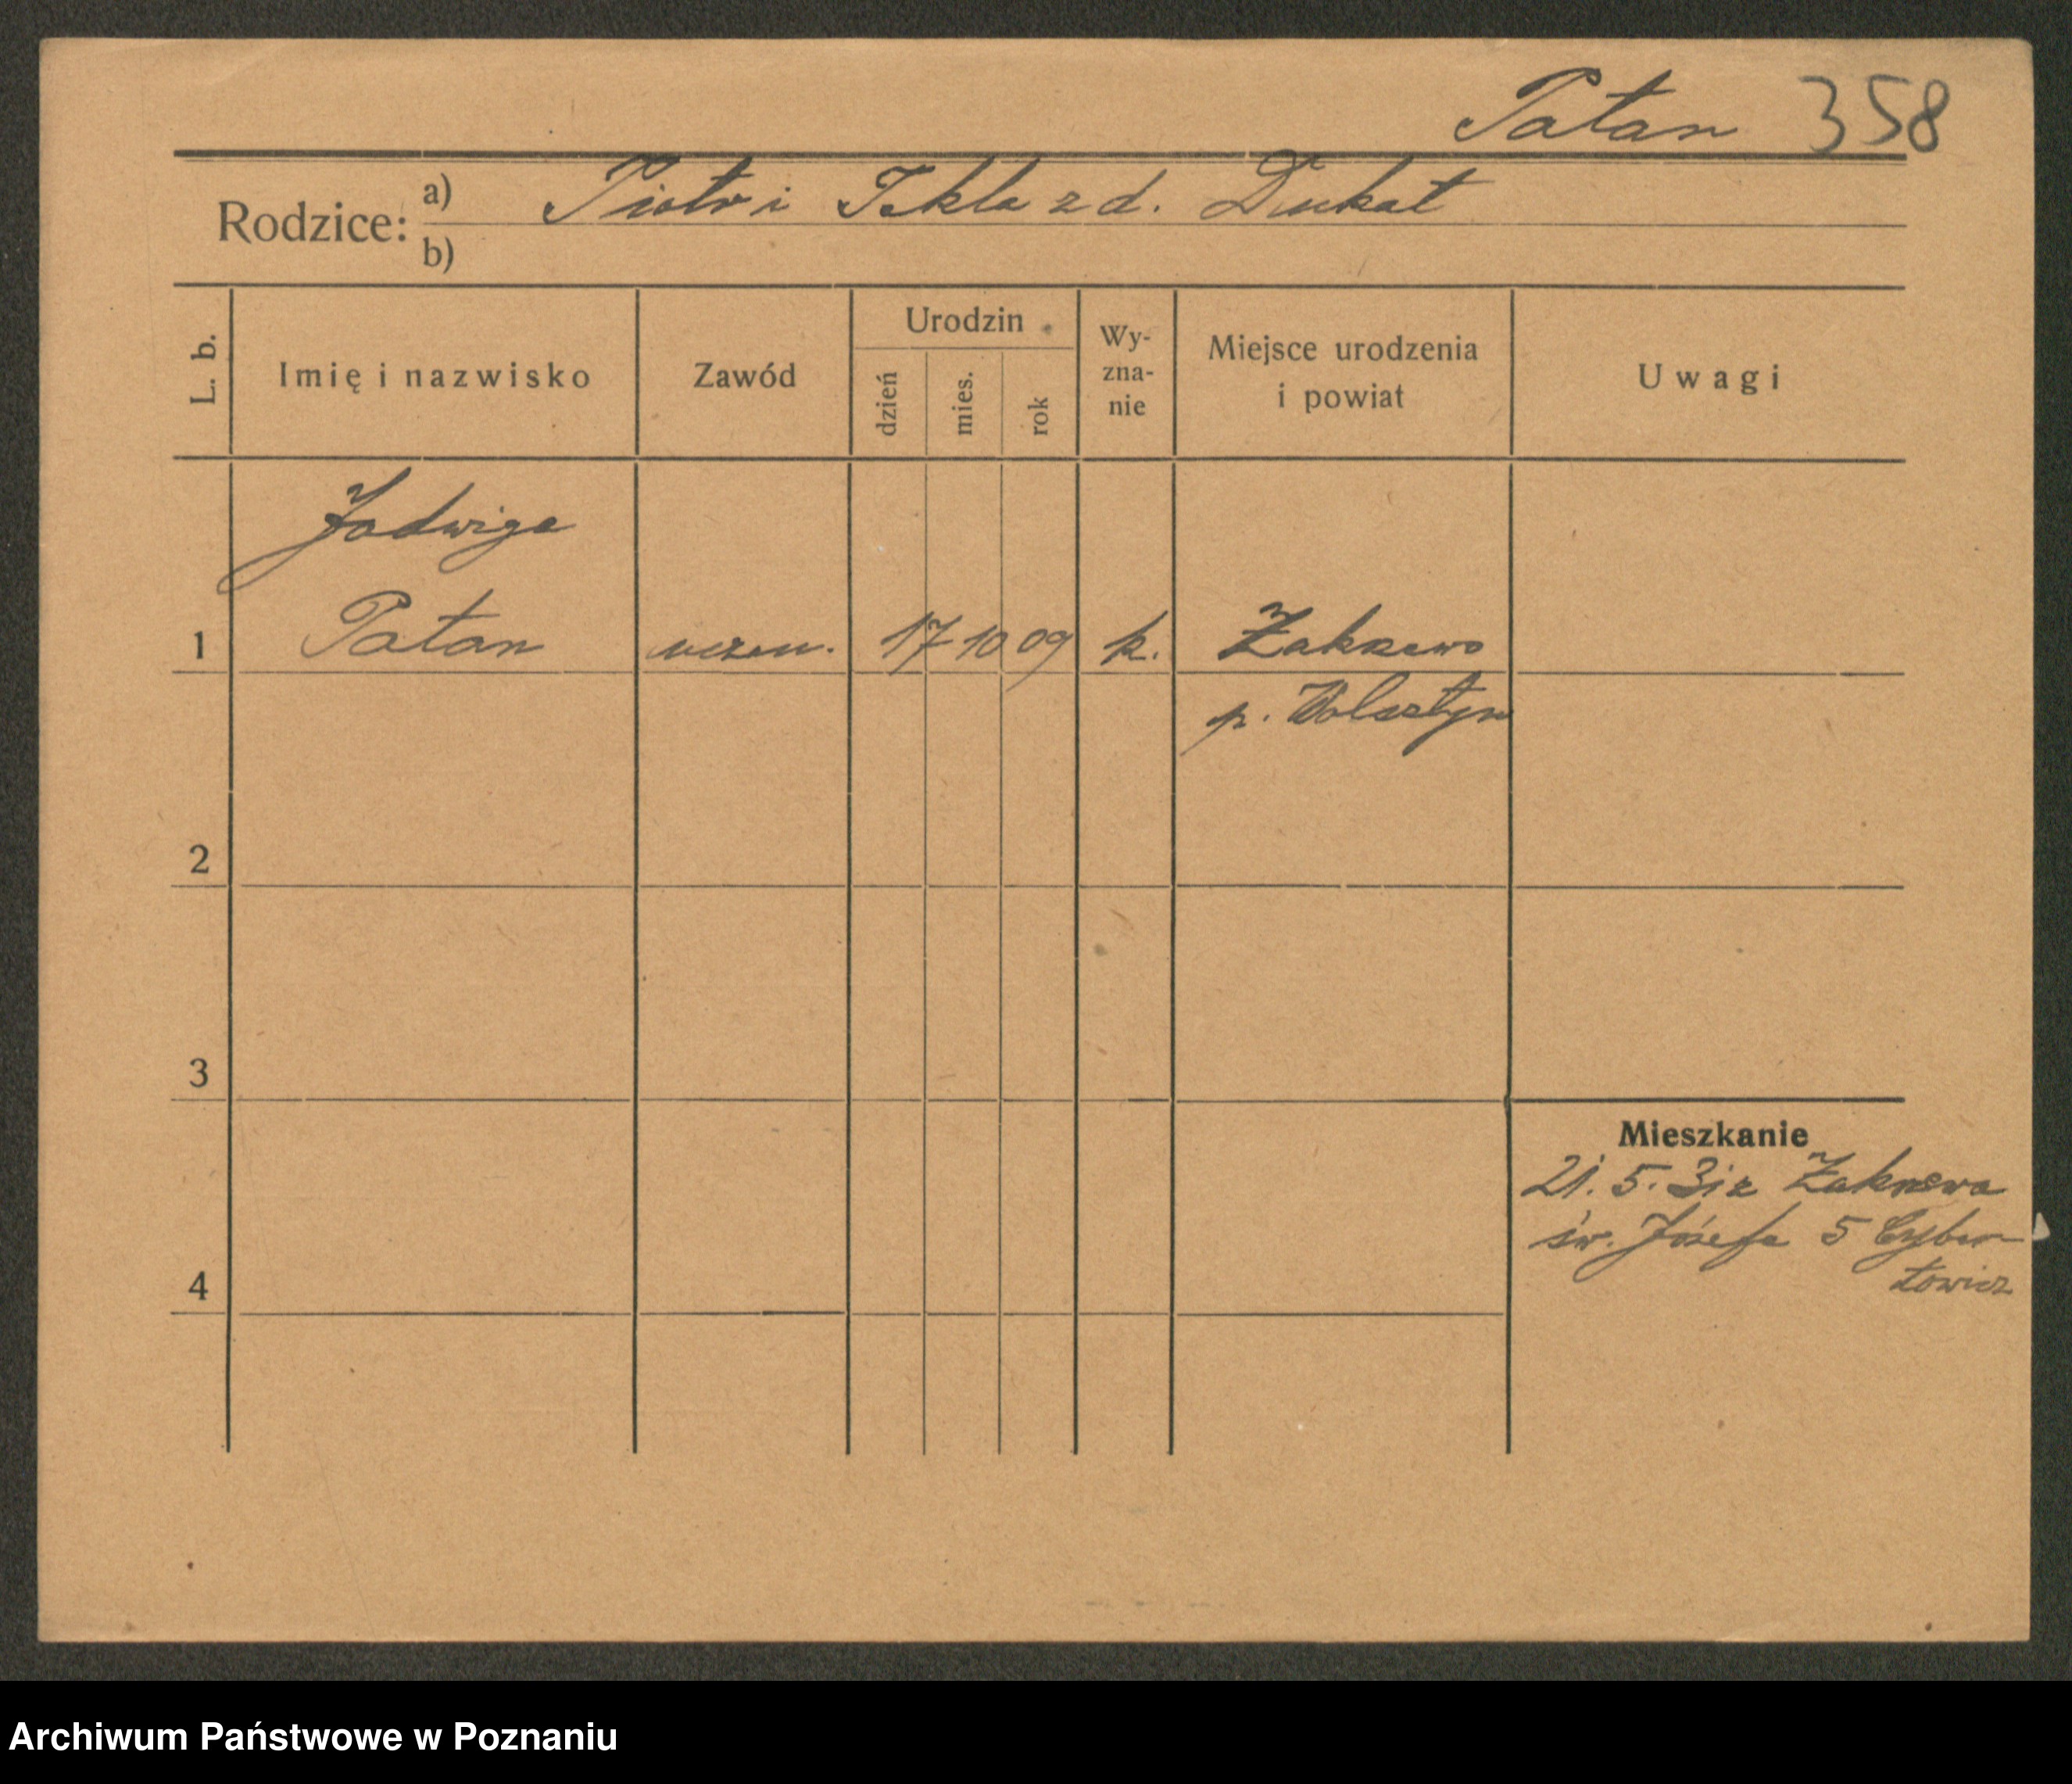 Patan 358
Rodzice: a) Piotr i Tekla z d. Dukat
b)
L. b. Imię i nazwisko Zawód Urodzin dzień mies. rok Wy-zna-nie Miejsce urodzenia i powiat Uwagi
Jadwiga
1 Patan uczen. 17 10 09 k. Zakrzewo
p. Wolsztyn
2
3
Mieszkanie
21. 5. 31 z Zakrzewa
św. Józefa 5 Cyber-
4 towicz
Archiwum Państwowe w Poznaniu